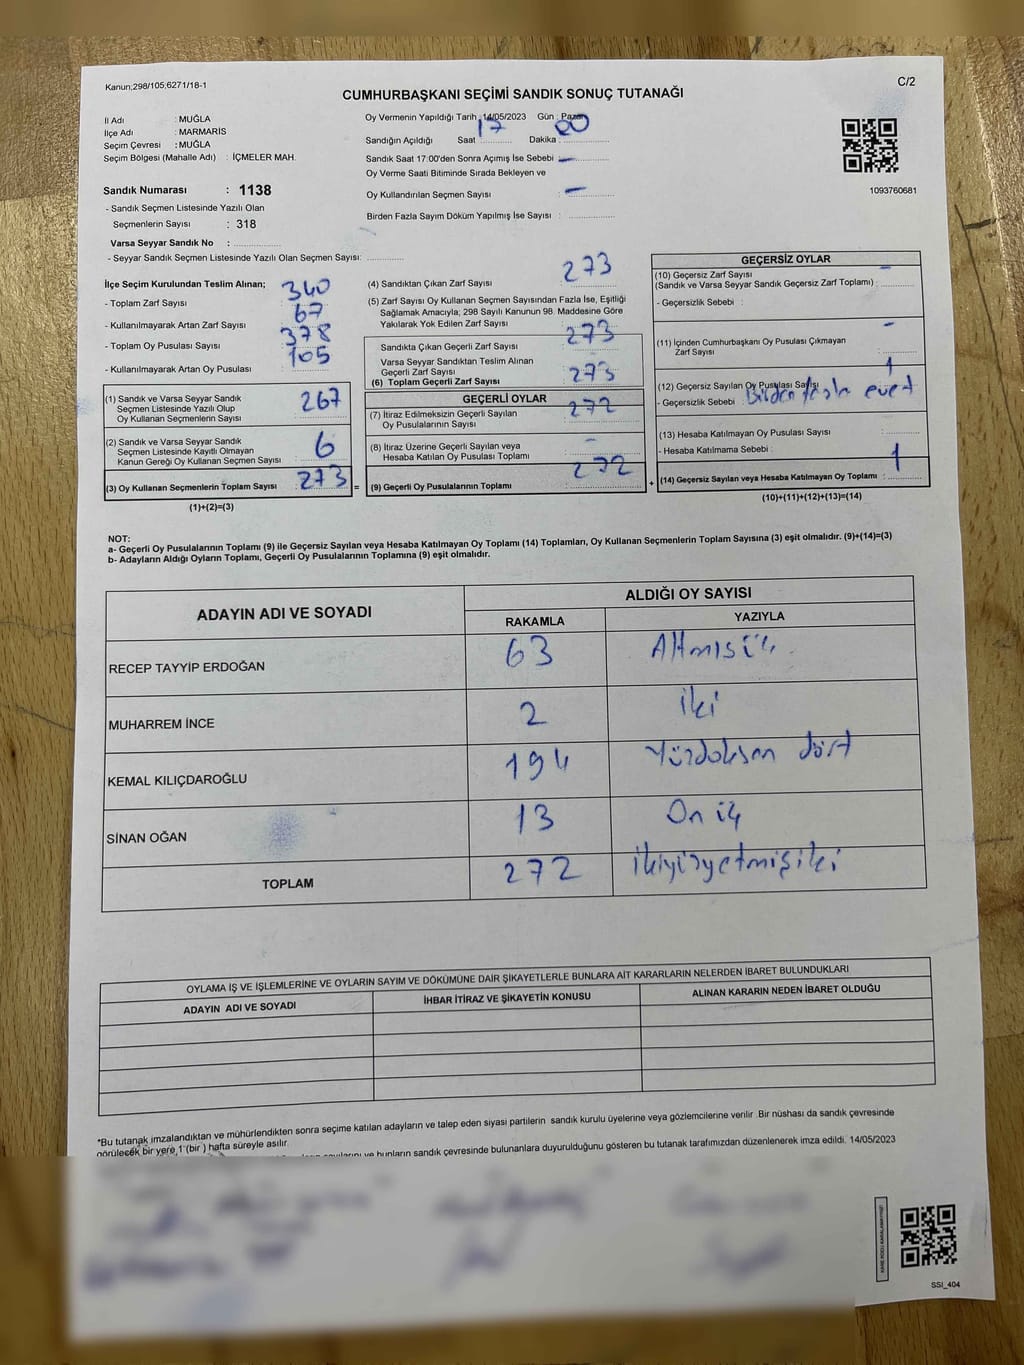 Kanun;298/105;6271/18-1
C/2
CUMHURBAŞKANI SEÇİMİ SANDIK SONUÇ TUTANAĞI
İl Adı : MUĞLA
İlçe Adı : MARMARİS
Seçim Çevresi : MUĞLA
Seçim Bölgesi (Mahalle Adı) : İÇMELER MAH.
Sandık Numarası : 1138
- Sandık Seçmen Listesinde Yazılı Olan
Seçmenlerin Sayısı : 318
Varsa Seyyar Sandık No :
- Seyyar Sandık Seçmen Listesinde Yazılı Olan Seçmen Sayısı:
Oy Vermenin Yapıldığı Tarih :14/05/2023 Gün : Pazar
Sandığın Açıldığı Saat : 17 Dakika : 00
Sandık Saat 17:00'den Sonra Açımış İse Sebebi : -
Oy Verme Saati Bitiminde Sırada Bekleyen ve
Oy Kullandırılan Seçmen Sayısı : -
Birden Fazla Sayım Döküm Yapılmış İse Sayısı :
1093760681
İlçe Seçim Kurulundan Teslim Alınan;
- Toplam Zarf Sayısı : 340
- Kullanılmayarak Artan Zarf Sayısı : 67
- Toplam Oy Pusulası Sayısı : 378
- Kullanılmayarak Artan Oy Pusulası : 105
(1) Sandık ve Varsa Seyyar Sandık
Seçmen Listesinde Yazılı Olup
Oy Kullanan Seçmenlerin Sayısı : 267
(2) Sandık ve Varsa Seyyar Sandık
Seçmen Listesinde Kayıtlı Olmayan
Kanun Gereği Oy Kullanan Seçmen Sayısı : 6
(3) Oy Kullanan Seçmenlerin Toplam Sayısı : 273 =
(1)+(2)=(3)
(4) Sandıktan Çıkan Zarf Sayısı : 273
(5) Zarf Sayısı Oy Kullanan Seçmen Sayısından Fazla İse, Eşitliği
Sağlamak Amacıyla; 298 Sayılı Kanunun 98. Maddesine Göre
Yakılarak Yok Edilen Zarf Sayısı :
Sandıkta Çıkan Geçerli Zarf Sayısı : 273
Varsa Seyyar Sandıktan Teslim Alınan
Geçerli Zarf Sayısı :
(6) Toplam Geçerli Zarf Sayısı : 273
GEÇERLİ OYLAR
(7) İtiraz Edilmeksizin Geçerli Sayılan
Oy Pusulalarının Sayısı : 272
(8) İtiraz Üzerine Geçerli Sayılan veya
Hesaba Katılan Oy Pusulası Toplamı : -
(9) Geçerli Oy Pusulalarının Toplamı : 272 +
GEÇERSİZ OYLAR
(10) Geçersiz Zarf Sayısı
(Sandık ve Varsa Seyyar Sandık Geçersiz Zarf Toplamı) : -
- Geçersizlik Sebebi :
(11) İçinden Cumhurbaşkanı Oy Pusulası Çıkmayan
Zarf Sayısı : -
(12) Geçersiz Sayılan Oy Pusulası Sayısı : 1
- Geçersizlik Sebebi : Birden fazla evet
(13) Hesaba Katılmayan Oy Pusulası Sayısı :
- Hesaba Katılmama Sebebi :
(14) Geçersiz Sayılan veya Hesaba Katılmayan Oy Toplamı : 1
(10)+(11)+(12)+(13)=(14)
NOT:
a- Geçerli Oy Pusulalarının Toplamı (9) ile Geçersiz Sayılan veya Hesaba Katılmayan Oy Toplamı (14) Toplamları, Oy Kullanan Seçmenlerin Toplam Sayısına (3) eşit olmalıdır. (9)+(14)=(3)
b- Adayların Aldığı Oyların Toplamı, Geçerli Oy Pusulalarının Toplamına (9) eşit olmalıdır.
ADAYIN ADI VE SOYADI
ALDIĞI OY SAYISI
RAKAMLA YAZIYLA
RECEP TAYYİP ERDOĞAN 63 Altmış üç
MUHARREM İNCE 2 iki
KEMAL KILIÇDAROĞLU 194 Yüzdoksan dört
SİNAN OĞAN 13 On üç
TOPLAM 272 ikiyüzyetmişiki
OYLAMA İŞ VE İŞLEMLERİNE VE OYLARIN SAYIM VE DÖKÜMÜNE DAİR ŞİKAYETLERLE BUNLARA AİT KARARLARIN NELERDEN İBARET BULUNDUKLARI
ADAYIN ADI VE SOYADI İHBAR İTİRAZ VE ŞİKAYETİN KONUSU ALINAN KARARIN NEDEN İBARET OLDUĞU
*Bu tutanak imzalandıktan ve mühürlendikten sonra seçime katılan adayların ve talep eden siyasi partilerin sandık kurulu üyelerine veya gözlemcilerine verilir .Bir nüshası da sandık çevresinde
görülecek bir yere 1 (bir ) hafta süreyle asılır.
ve bunların sandık çevresinde bulunanlara duyurulduğunu gösteren bu tutanak tarafımızdan düzenlenerek imza edildi. 14/05/2023
SSI_404